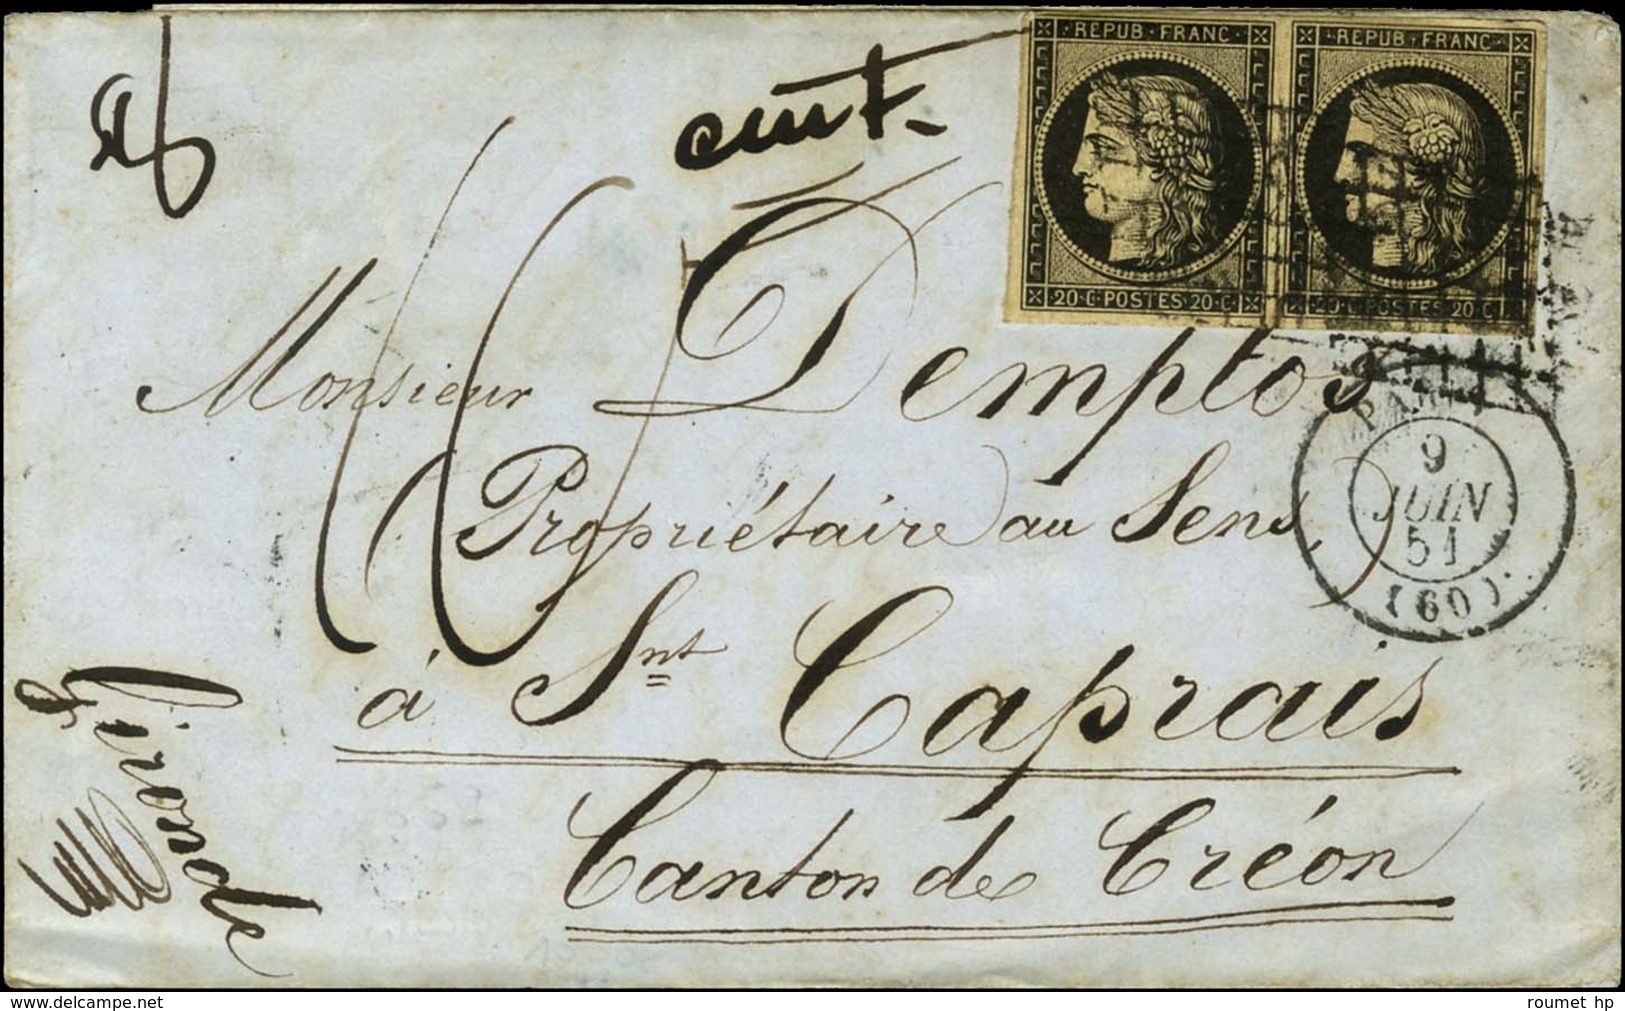 REPUB · FRANC
REPUB · FRANC
20 · C · POSTES · 20 · C
20 · C · POSTES · 20 · C
Monsieur Demptos
Propriétaire au Sens,
à Snt Caprais
Canton de Créon
Gironde
PARIS
9
JUIN
51
(60)
www.delcampe.net
roumet hp